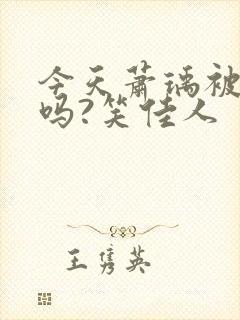 今天萧瑀被
吗?笑佳人
王隽英